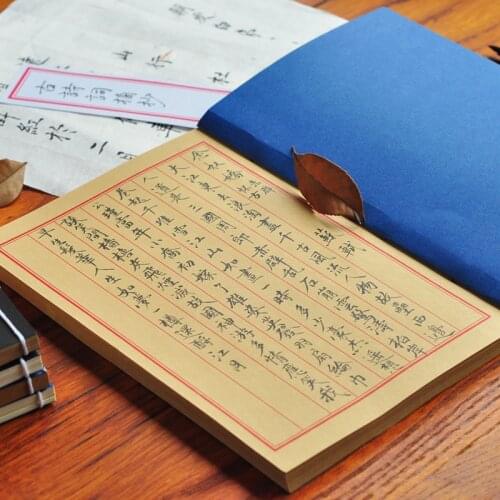 古詩詞摘抄
山行 杜
紅於二月
念奴嬌 懷古 蘇軾
大江東去浪淘盡千古風流人物故壘西邊
人道是三國周郎赤壁亂石崩雲驚濤拍岸
捲起千堆雪江山如畫一時多少豪杰遙想
公瑾當年小喬初嫁了雄姿英發羽扇綸巾
談笑間檣櫓灰飛煙滅故國神游多情應笑我
早生華髮人生如夢一樽還酹江月